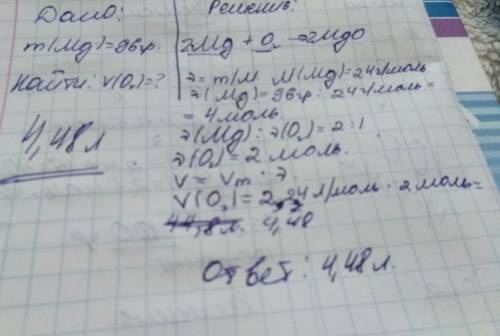 Дано:
m(Mg)=96гр.
Найти: V(O₂)=?
4,48л
Решение:
2Mg + O₂ → 2MgO
ν = m/M. M(Mg)=24г/моль
ν(Mg)=96гр : 24г/моль=
= 4 моль.
ν(Mg) : ν(O₂) = 2:1
ν(O₂) = 2 моль.
V = Vm · ν.
V(O₂)=2,24л/моль · 2 моль=
44,8л. 4,48
Ответ: 4,48л.